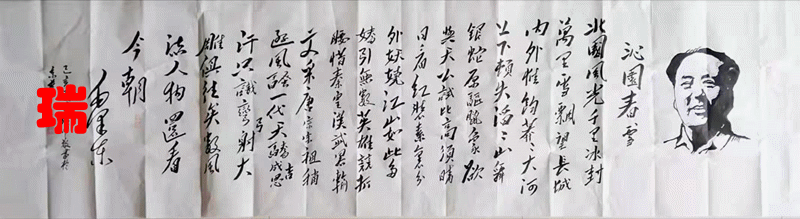 沁園春 雪
北國風光千里冰封
萬里雪飄望長城
内外惟餘莽々大河
上下頓失滔々山舞
銀蛇原驅臘象欲
與天公試比高須晴
日看紅裝素裹分
外妖嬈江山如此多
嬌引無數英雄競折
腰惜秦皇漢武略輸
文采唐宗宋祖稍
遜風騷一代天驕成吉思
汗只識彎弓射大
雕俱往矣數風
流人物還看
今朝
毛澤東
瑞